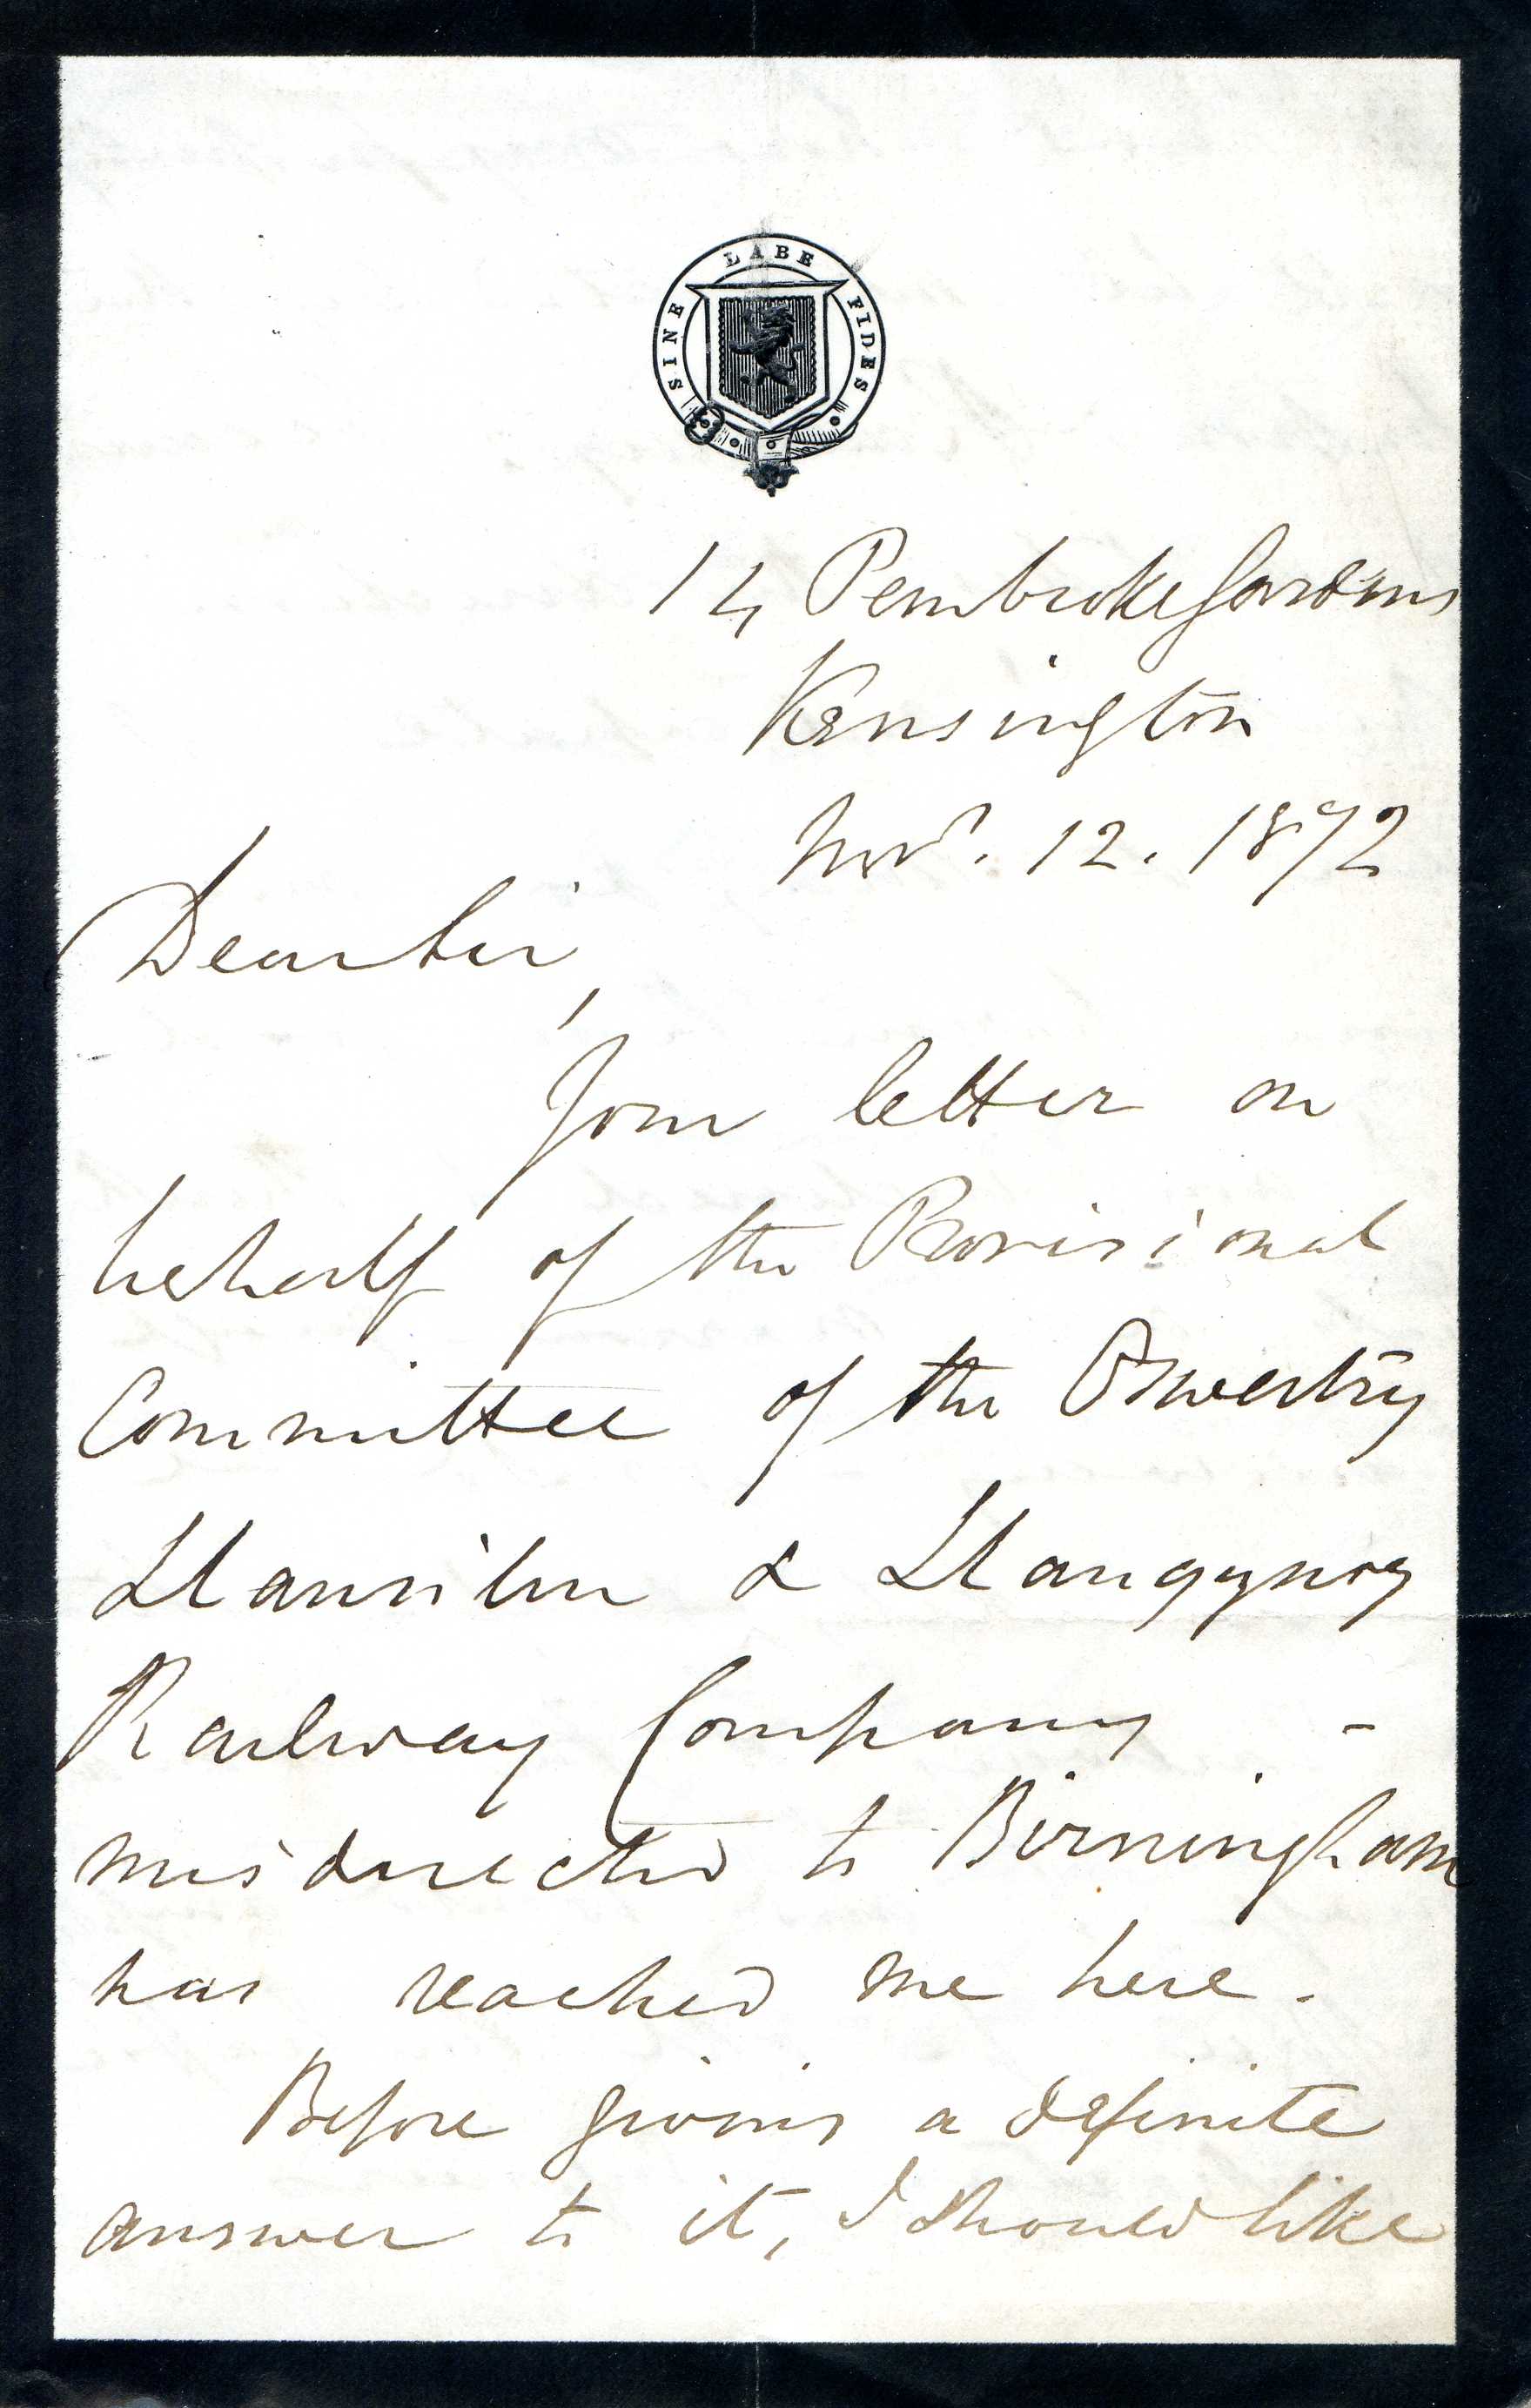 SINE LABE FIDES
14 Pembroke Gardens
Kensington
Novr. 12. 1872
Dear Sir,
Your letter on
behalf of the Provisional
Committee of the Oswestry
Llansilin & Llangynog
Railway Company -
misdirected to Birmingham
has reached me here.
Before giving a definite
answer to it, I should like